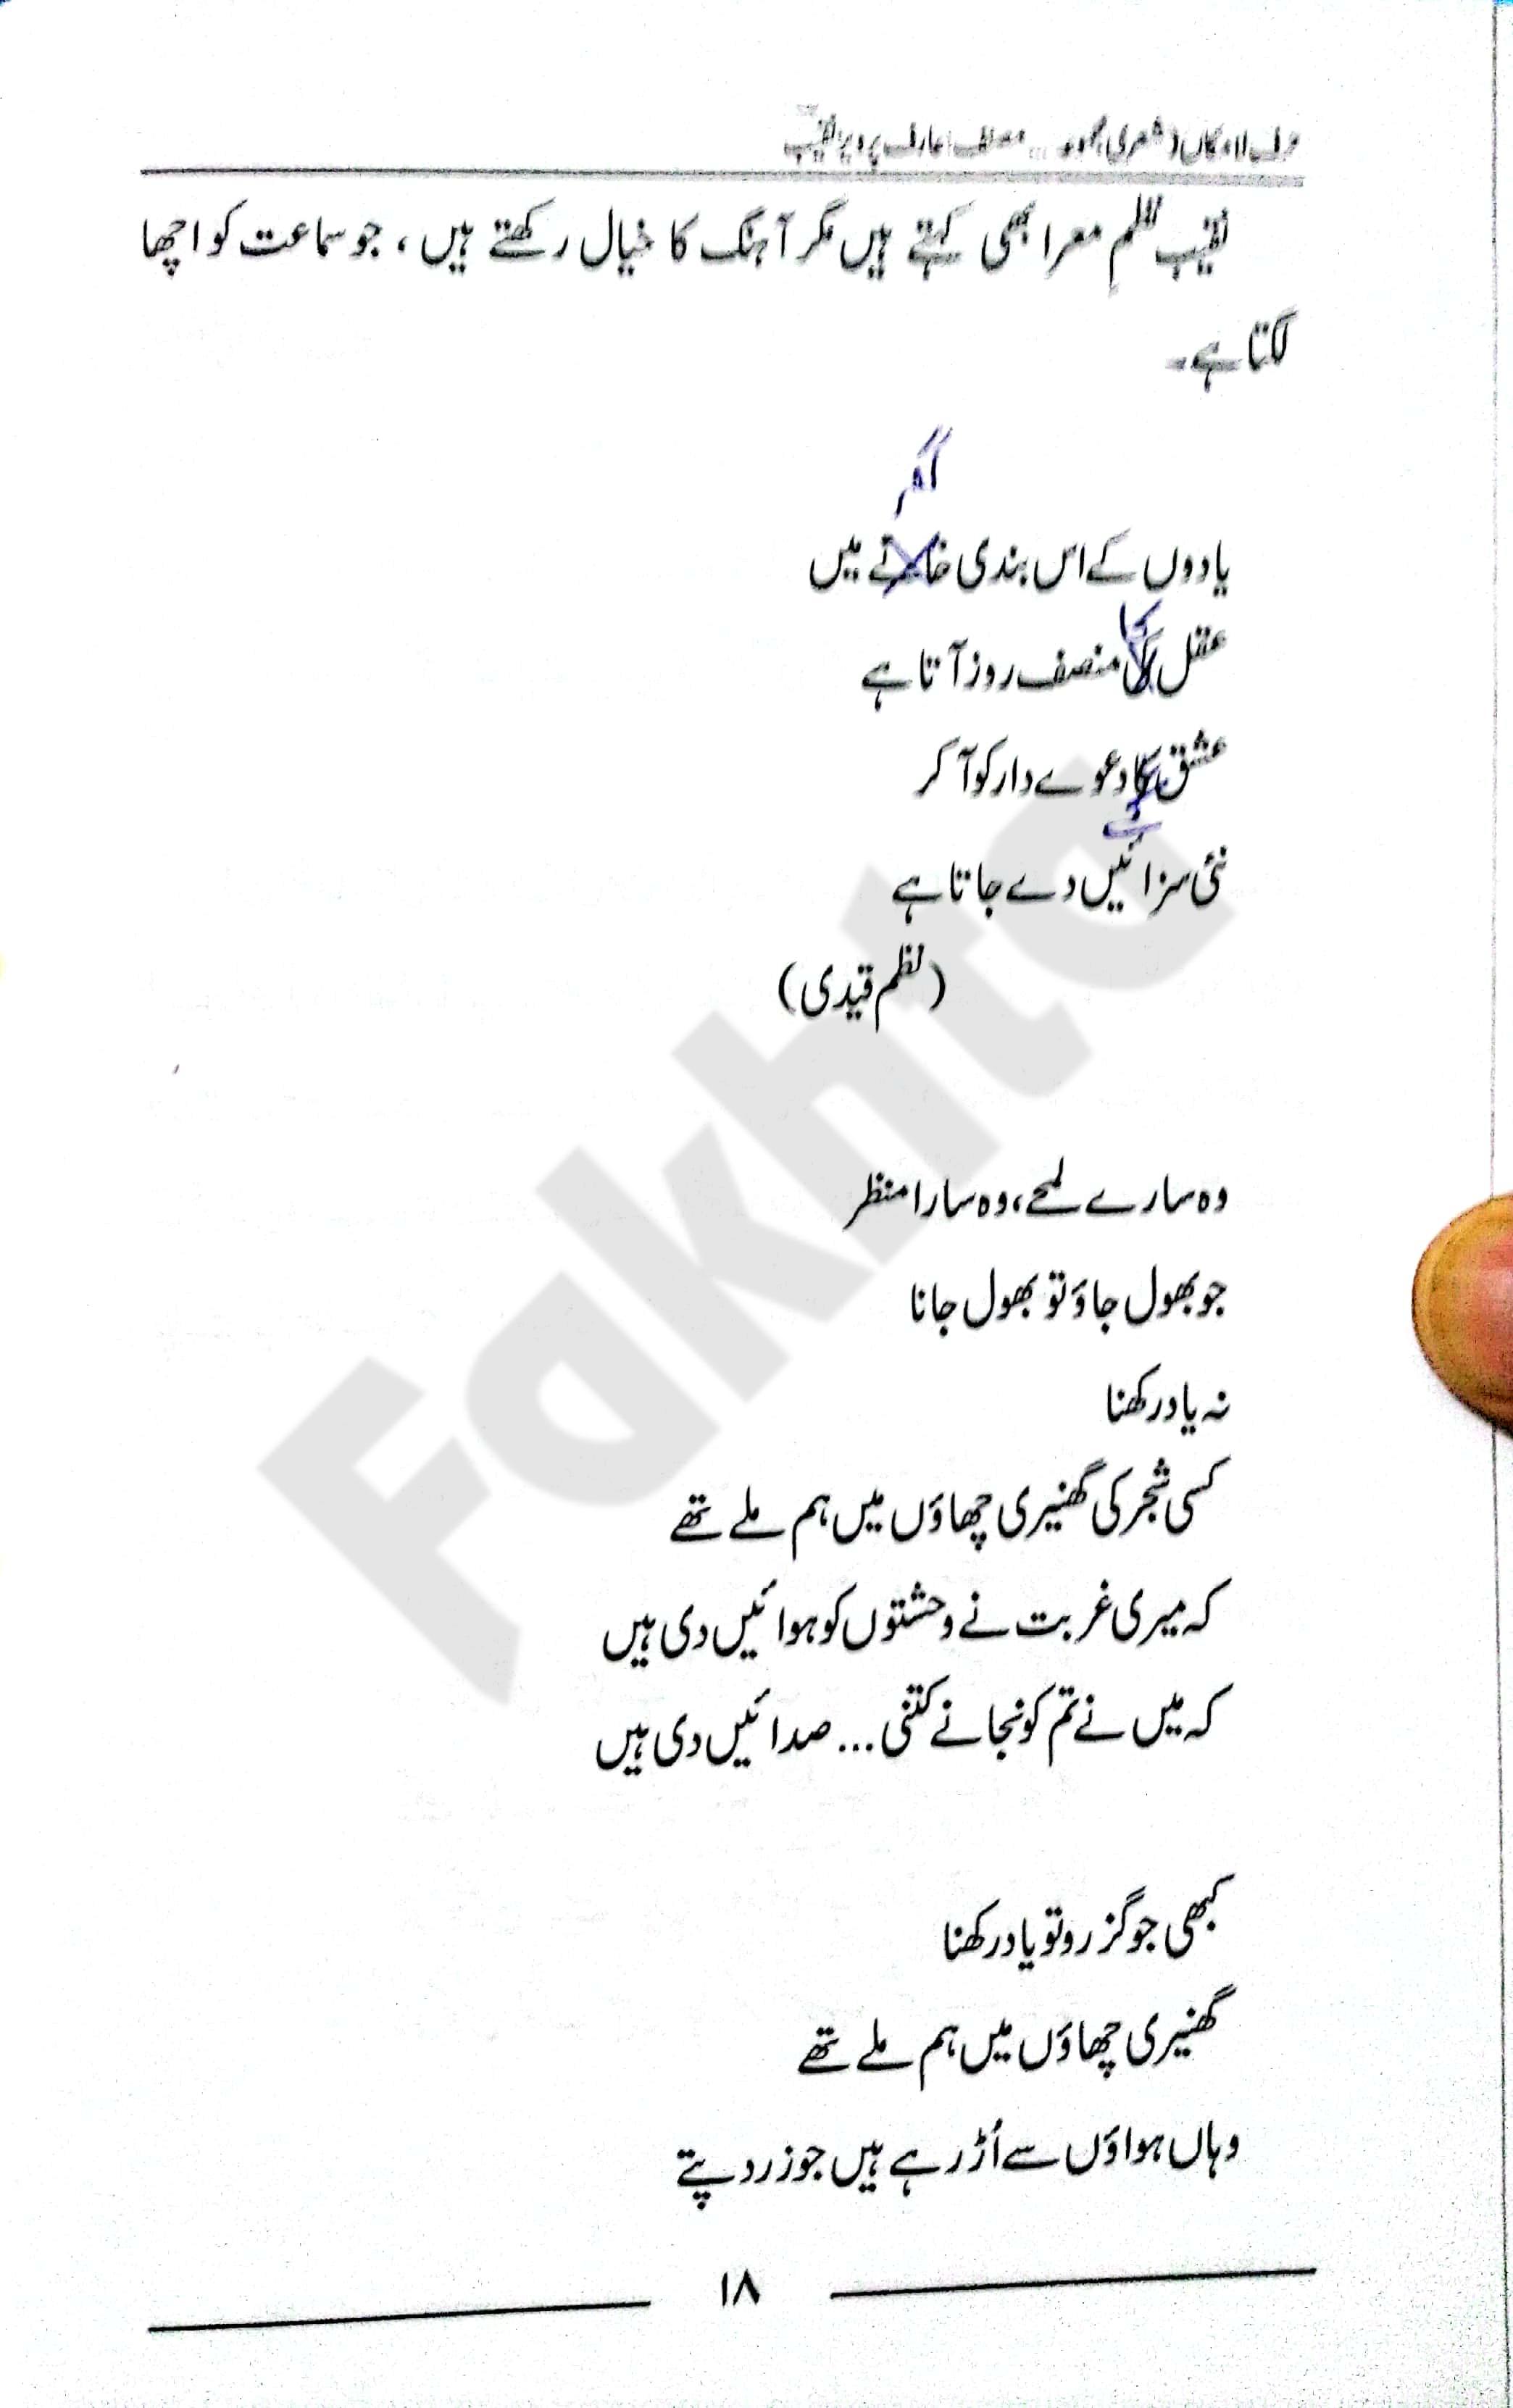 حرف لامکاں (شعری مجموعہ... مصنف: عارف پرویز نقیب
نقیب نظم معرا بھی کہتے ہیں مگر آہنگ کا خیال رکھتے ہیں، جو سماعت کو اچھا
لگتا ہے۔
یادوں کے اس بندی خانے میں
کا
عقل کی منصف روز آتا ہے
عشق کا دعوے دار کو آ کر
کے
نئی سزائیں دے جاتا ہے
(نظم قیدی)
وہ سارے لمحے، وہ سارا منظر
جو بھول جاؤ تو بھول جانا
نہ یاد رکھنا
کسی شجر کی گھنیری چھاؤں میں ہم ملے تھے
کہ میری غربت نے وحشتوں کو ہوائیں دی ہیں
کہ میں نے تم کو نجانے کتنی... صدائیں دی ہیں
کبھی جو گزرو تو یاد رکھنا
گھنیری چھاؤں میں ہم ملے تھے
وہاں ہواؤں سے اُڑ رہے ہیں جو زرد پتے
۱۸
Fakhta